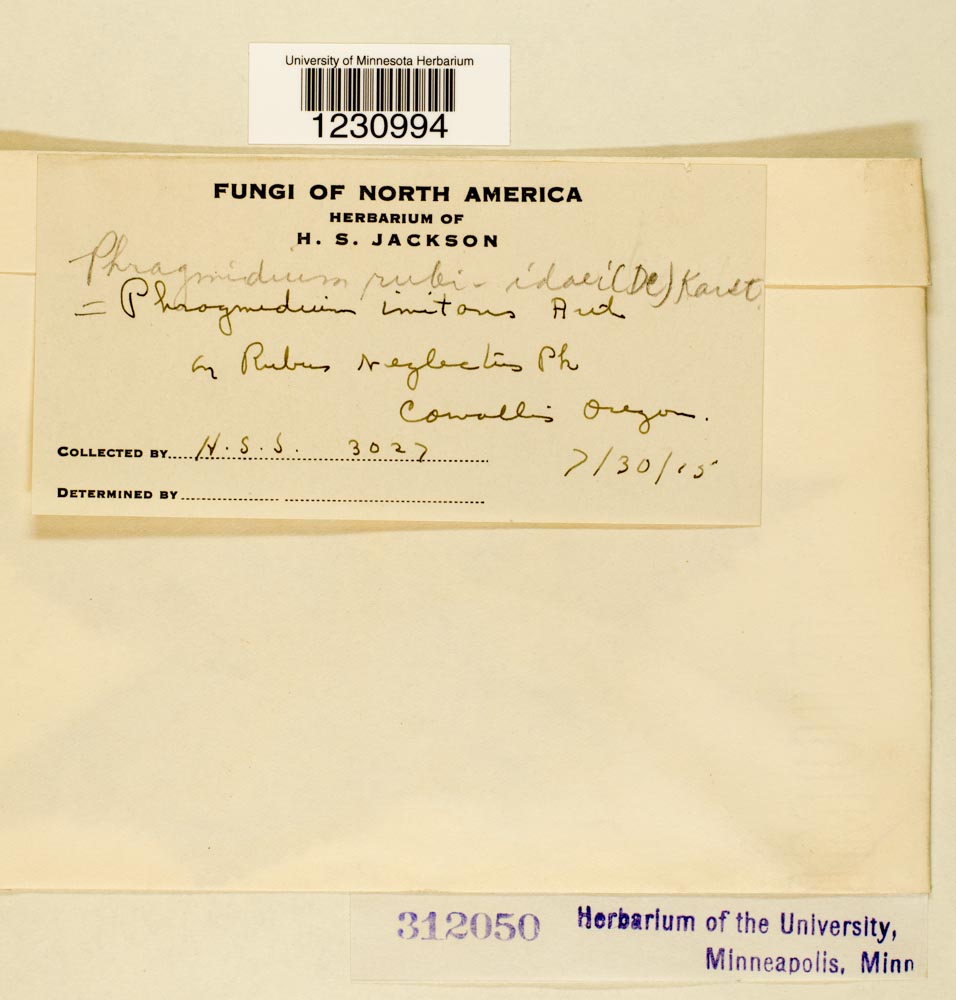 University of Minnesota Herbarium
1230994
FUNGI OF NORTH AMERICA
HERBARIUM OF
H. S. JACKSON
Phragmidium rubi-idaei (DC) Karst
= Phragmidium imitans
on Rubus Neglectus
Corvallis Oregon.
COLLECTED BY 3027
7/30/15
DETERMINED BY
312050 Herbarium of the University,
Minneapolis, Minn